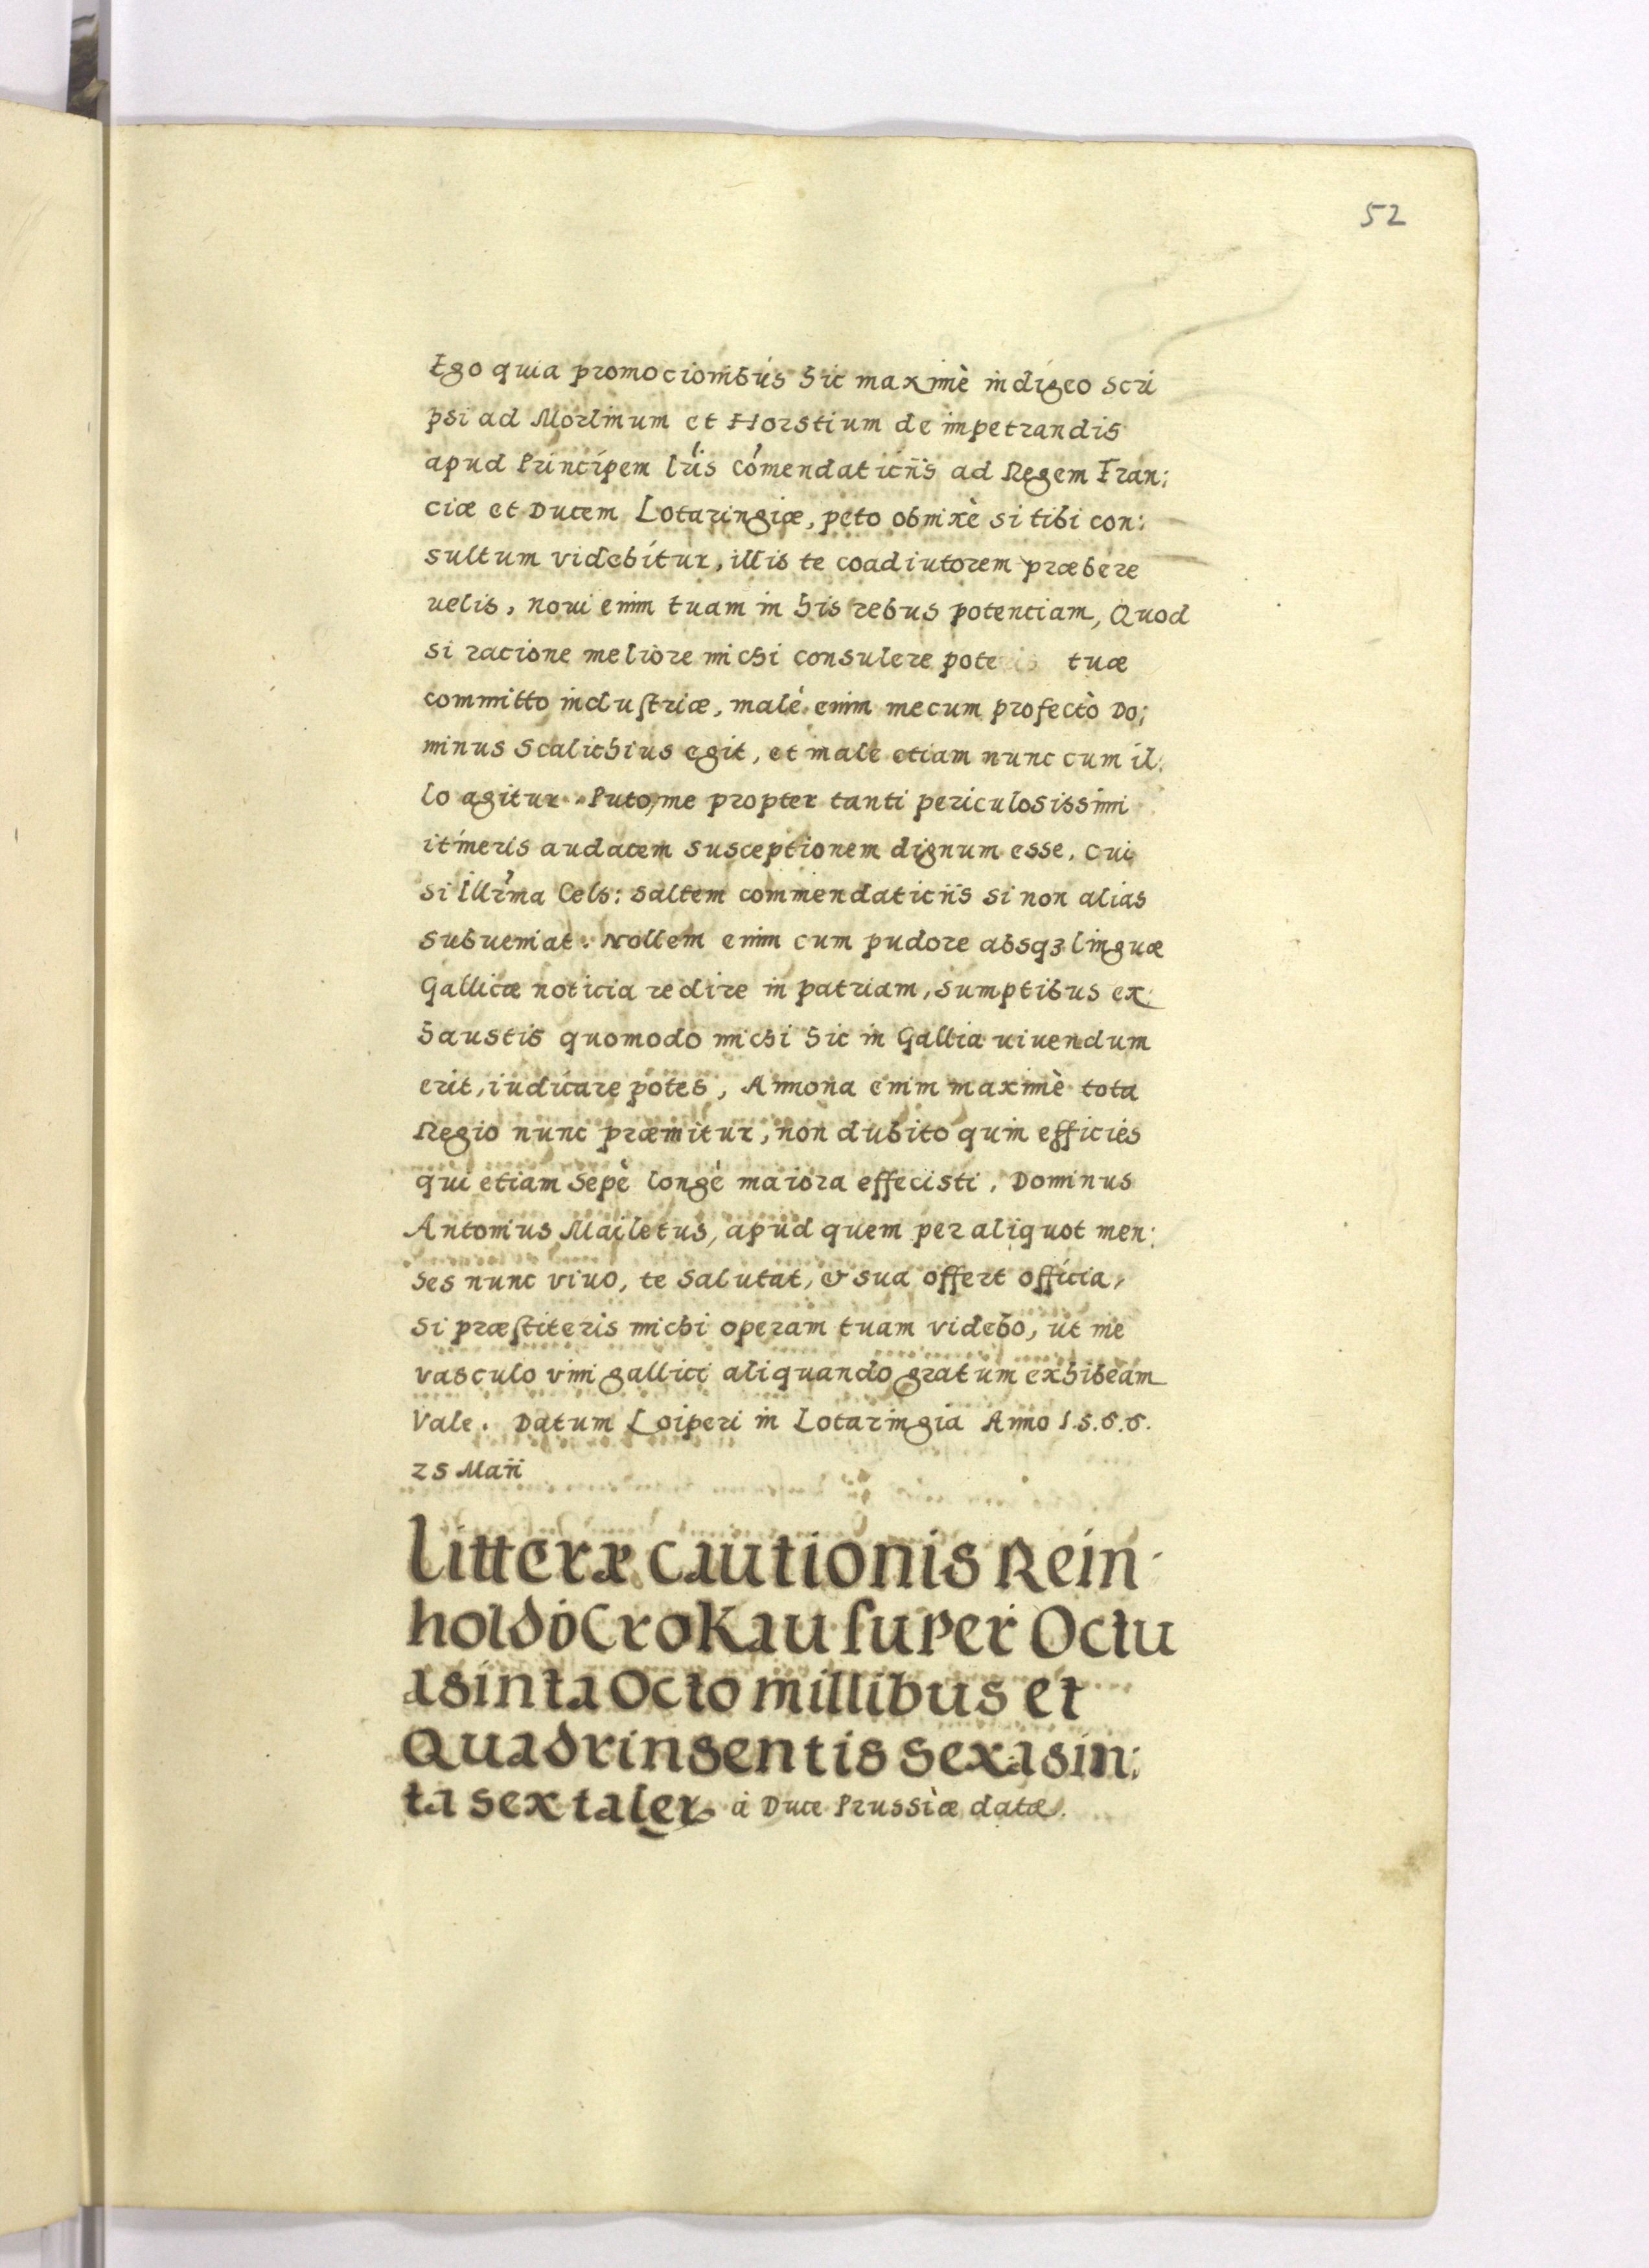 52
Ego quia promocionibus hic maximè indigeo scri
psi ad Morlinum et Horstium de impetrandis
apud Principem lr̃is cõmendaticiis ad Regem Fran:
ciæ et Ducem Lotaringiæ, peto obnixè si tibi con:
sultum videbitur, illis te coadiutorem præbere
uelis, noui enim tuam in his rebus potentiam, Quod
si racione meliore michi consulere poteris tuæ
committo induſtriæ, malè enim mecum profectò Do:
minus Scalichius egit, et male etiam nunc cum il:
lo agitur. Puto, me propter tanti periculosissimi
itineris audacem susceptionem dignum esse, cui
si Illr̃ma Cels: saltem commendaticiis si non alias
subueniat. Nollem enim cum pudore absqꝫ linguæ
Gallicæ noticia redire in patriam, sumptibus ex:
haustis quomodo michi hic in Gallia uiuendum
erit, iudicare potes, Annona enim maximè tota
Regio nunc præmitur, non dubito quin efficies
qui etiam sepè longè maiora effecisti, Dominus
Antonius Mailetus, apud quem per aliquot men:
ses nunc viuo, te salutat, & sua offert officia,
Si præſtiteris michi operam tuam videbo, ut me
vasculo vini gallici aliquando gratum exhibeam
Vale. Datum Loiperi in Lotaringia Anno 1.5.6.6.
25 Maii
Litteræ cautionis Rein:
holdo Crokau ſuper Octu
aginta Octo millibus et
Quadringentis sexagin:
ta sex taler à Duce Prussiæ datæ.